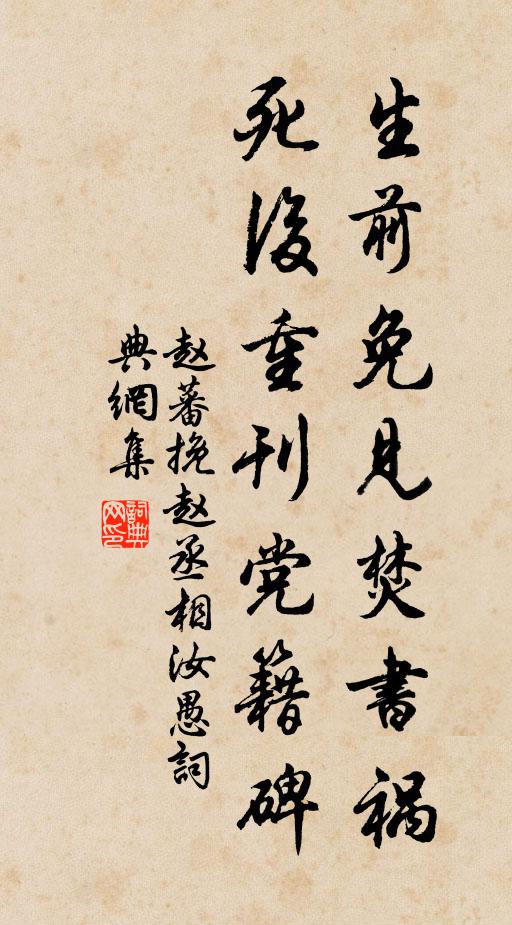 生前免見焚書禍
死後重刊党籍碑
赵蕃挽赵丞相汝愚詞
典網集
詞典
网印